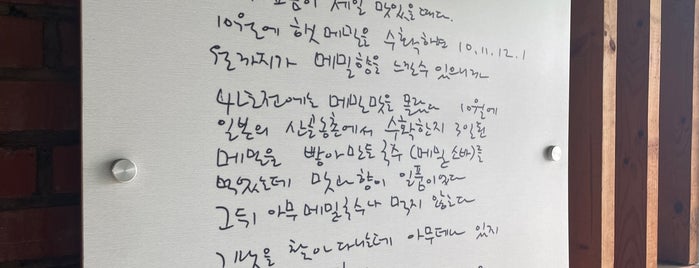 제일 맛있을때다.
10월에 햇 메밀을 수확하면 10.11.12.1
월까지가 메밀향을 느낄수 있으니까
4년전에는 메밀맛을 몰랐다 10월에
일본의 산골농촌에서 수확한지 3일된
메밀을 빻아만든국수 (메밀소바)를
먹었는데 맛과 향이 일품이었다
그뒤 아무메밀국수나 먹지 않는다
찾아다니는데 아무데나 있지